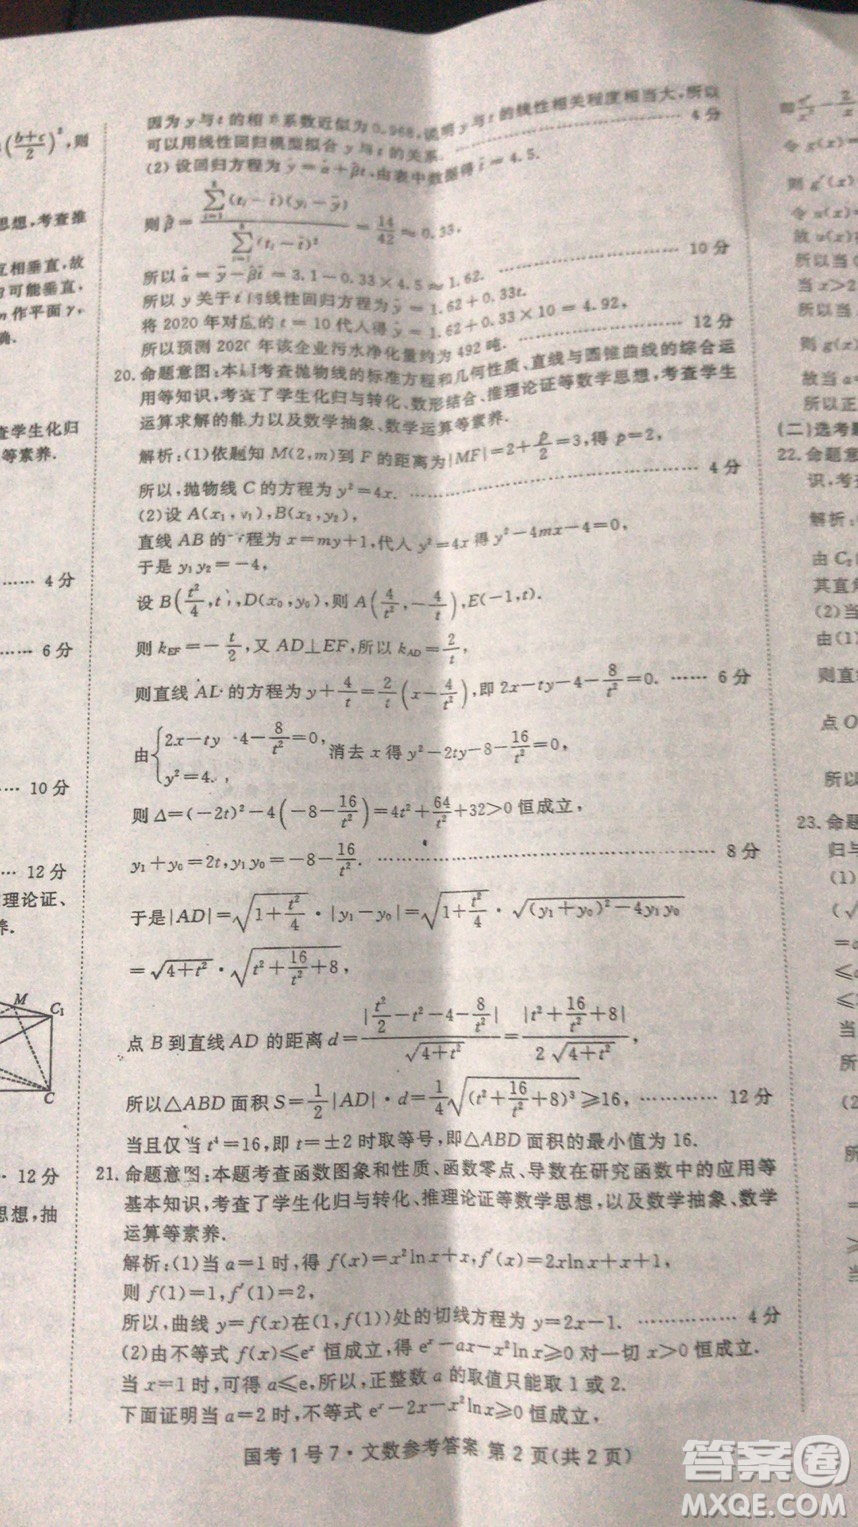 (b+c/2)²,则
思想,考查推
互相垂直,故
可能垂直,
作平面 γ,
查学生化归
等素养.
…… 4 分
…… 6 分
…… 10 分
…… 12 分
理论证、
养.
M
C₁
C
…… 12 分
思想,抽
因为 y 与 t 的相关系数近似为 0.968,说明 y 与 t 的线性相关程度相当大,所以
可以用线性回归模型拟合 y 与 t 的关系. …… 4 分
(2) 设回归方程为 ŷ=α̂+β̂t,由表中数据得 t̄=4.5.
则 β̂=∑(tᵢ-t̄)(yᵢ-ȳ)/∑(tᵢ-t̄)²=14/42≈0.33,
所以 α̂=ȳ-β̂t̄=3.1-0.33×4.5≈1.62. …… 10 分
所以 y 关于 t 的线性回归方程为 ŷ=1.62+0.33t.
将 2020 年对应的 t=10 代入得 ŷ=1.62+0.33×10=4.92,
所以预测 2020 年该企业污水净化量约为 492 吨. …… 12 分
20. 命题意图:本题考查抛物线的标准方程和几何性质、直线与圆锥曲线的综合运
用等知识,考查了学生化归与转化、数形结合、推理论证等数学思想,考查学生
运算求解的能力以及数学抽象、数学运算等素养.
解析:(1)依题知 M(2,m)到 F 的距离为|MF|=2+p/2=3,得 p=2,
所以,抛物线 C 的方程为 y²=4x. …… 4 分
(2)设 A(x₁,y₁),B(x₂,y₂),
直线 AB 的方程为 x=my+1,代入 y²=4x 得 y²-4my-4=0,
于是 y₁y₂=-4,
设 B(t²/4,t),D(x₀,y₀),则 A(4/t²,-4/t),E(-1,t).
则 k_EF=-t/2,又 AD⊥EF,所以 k_AD=2/t,
则直线 AD 的方程为 y+4/t=2/t(x-4/t²),即 2x-ty-4-8/t²=0. …… 6 分
由{2x-ty-4-8/t²=0, y²=4x, 消去 x 得 y²-2ty-8-16/t²=0,
则 Δ=(-2t)²-4(-8-16/t²)=4t²+64/t²+32>0 恒成立,
y₁+y₀=2t,y₁y₀=-8-16/t². …… 8 分
于是|AD|=√(1+t²/4)·|y₁-y₀|=√(1+t²/4)·√((y₁+y₀)²-4y₁y₀)
=√(4+t²)·√(t²+16/t²+8),
点 B 到直线 AD 的距离 d=|t²/2-t²-4-8/t²|/√(4+t²)=|t²+16/t²+8|/2√(4+t²),
所以△ABD 面积 S=1/2|AD|·d=1/4√((t²+16/t²+8)³)≥16, …… 12 分
当且仅当 t⁴=16,即 t=±2 时取等号,即△ABD 面积的最小值为 16.
21. 命题意图:本题考查函数图象和性质、函数零点、导数在研究函数中的应用等
基本知识,考查了学生化归与转化、推理论证等数学思想,以及数学抽象、数学
运算等素养.
解析:(1)当 a=1 时,得 f(x)=x²lnx+x,f′(x)=2xlnx+x+1,
则 f(1)=1,f′(1)=2,
所以,曲线 y=f(x)在(1,f(1))处的切线方程为 y=2x-1. …… 4 分
(2)由不等式 f(x)≤eˣ 恒成立,得 eˣ-ax-x²lnx≥0 对一切 x>0 恒成立.
当 x=1 时,可得 a≤e,所以,正整数 a 的取值只能取 1 或 2.
下面证明当 a=2 时,不等式 eˣ-2x-x²lnx≥0 恒成立,
国考 1 号 7·文数参考答案 第 2 页(共 2 页)
令 g(x)
则 g′(x)
令 u(x)
故 u(x)
所以当
当 x>2
所以
则 g(x)
故当
所以正
(二)选考题
22. 命题意
识,考查
解析:
由 C₂
其直角
(2)当
由(1)
则直线
点 O
所以
23. 命题
归与
(1)
所以
(2)
所
答案圈
MXQE.COM